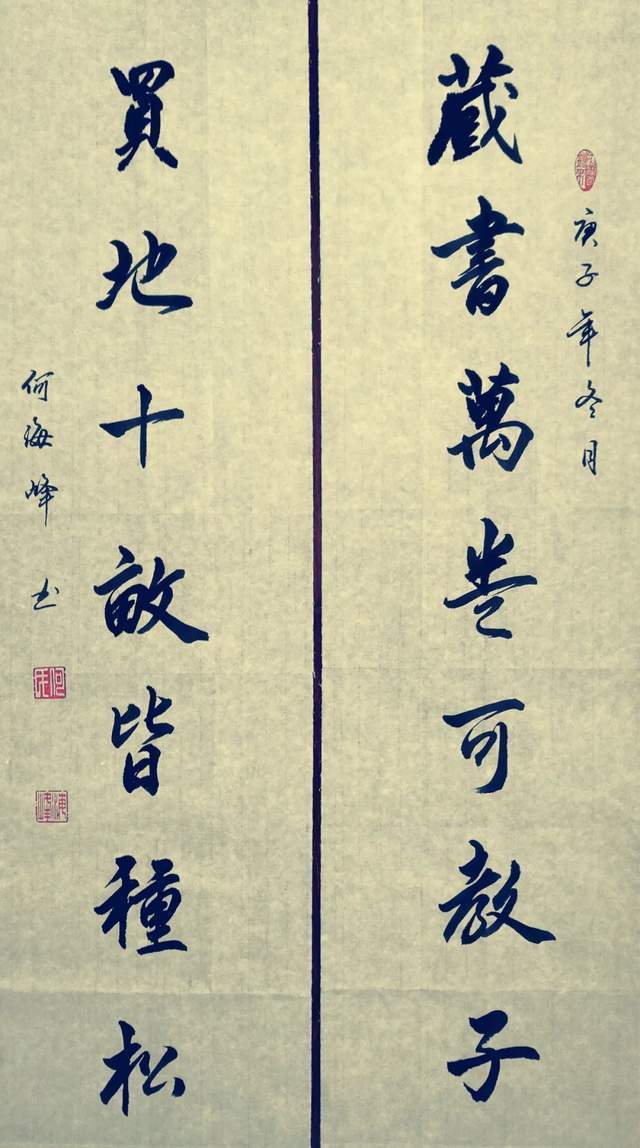 庚子年冬月
藏書萬卷可教子
買地十畝皆種松
何海峰书
何氏
海峰